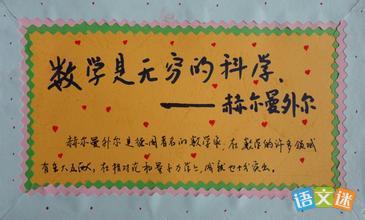 数学是无穷的科学、
——赫尔曼外尔
赫尔曼外尔是德国著名的数学家,在数学的许多领域
有重大贡献,在相对论和量子力学上,成就也十分突出
语文迷